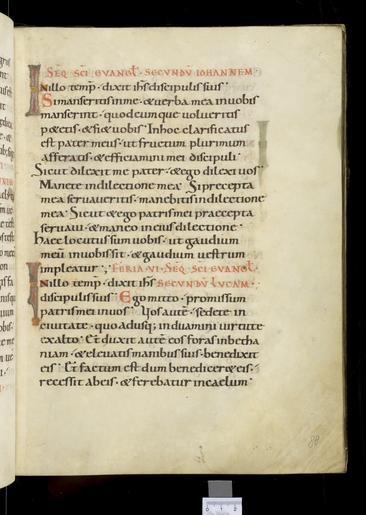 SEQ SCI EVANGL SECUNDV IOHANNEM
IN illo temp dixit ihs discipulis suis
Si manseritis in me & verba mea in vobis
manserint quodcumque volueritis
petetis & fi& vobis In hoc clarificatus
est pater meus ut fructum plurimum
afferatis & efficiamini mei discipuli
Sicut dilexit me pater & ego dilexi vos
Manete in dilectione mea Si precepta
mea servaveritis manebitis in dilectione
mea Sicut & ego patris mei praecepta
servavi & maneo in eius dilectione
Haec locutus sum vobis ut gaudium
meu in vobis sit & gaudium vestrum
impleatur FERIA VI SEQ SCI EVANGL
IN illo temp dixit ihs SECUNDV LUCAM
discipulis suis Ego mitto promissum
patris mei in vos Vos aute sedete in
civitate quo adusq induamini virtute
ex alto Et duxit aute eos foras in betha
niam & elevatis manibus suis benedixit
eis Et factum est dum benedicer& eis
recessit ab eis & ferebatur in caelum
88